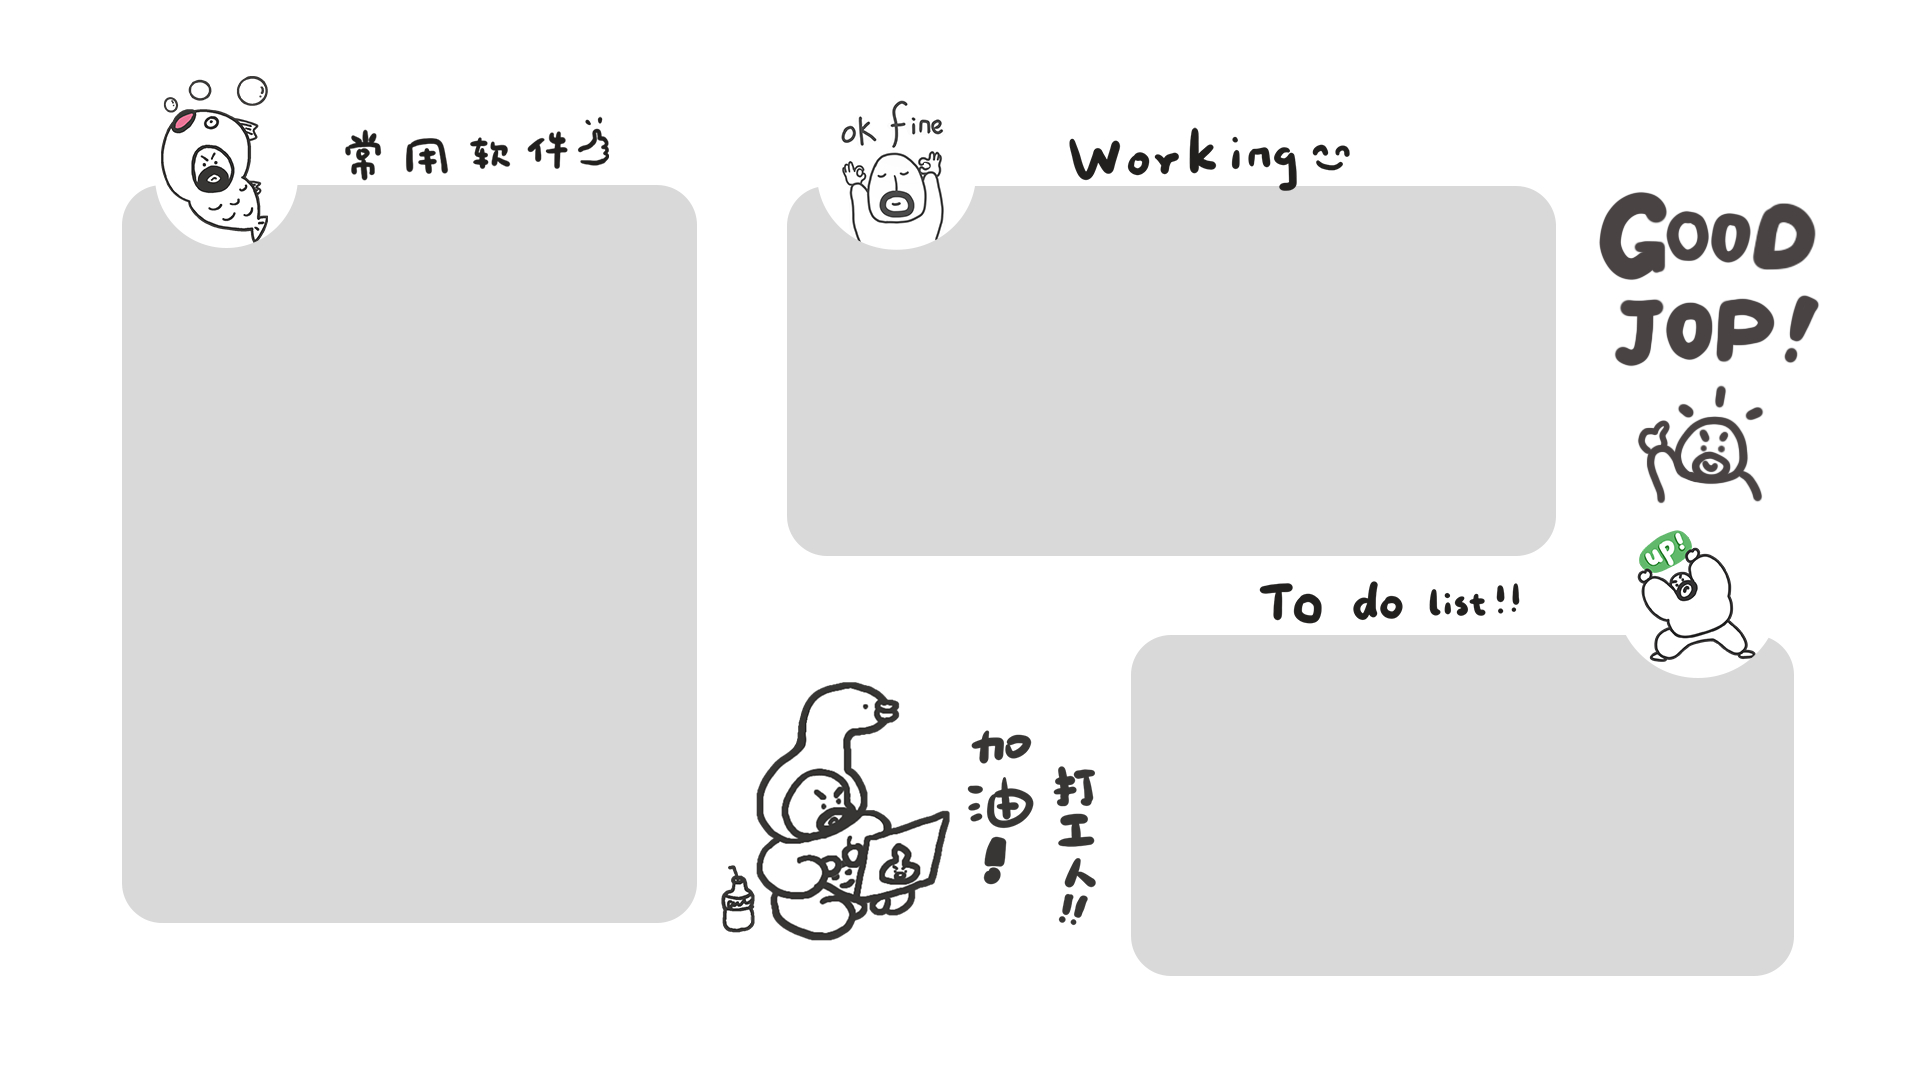 常用软件
ok fine
Working
GOOD
JOP!
UP!
To do list!!
加油!
打工人!!